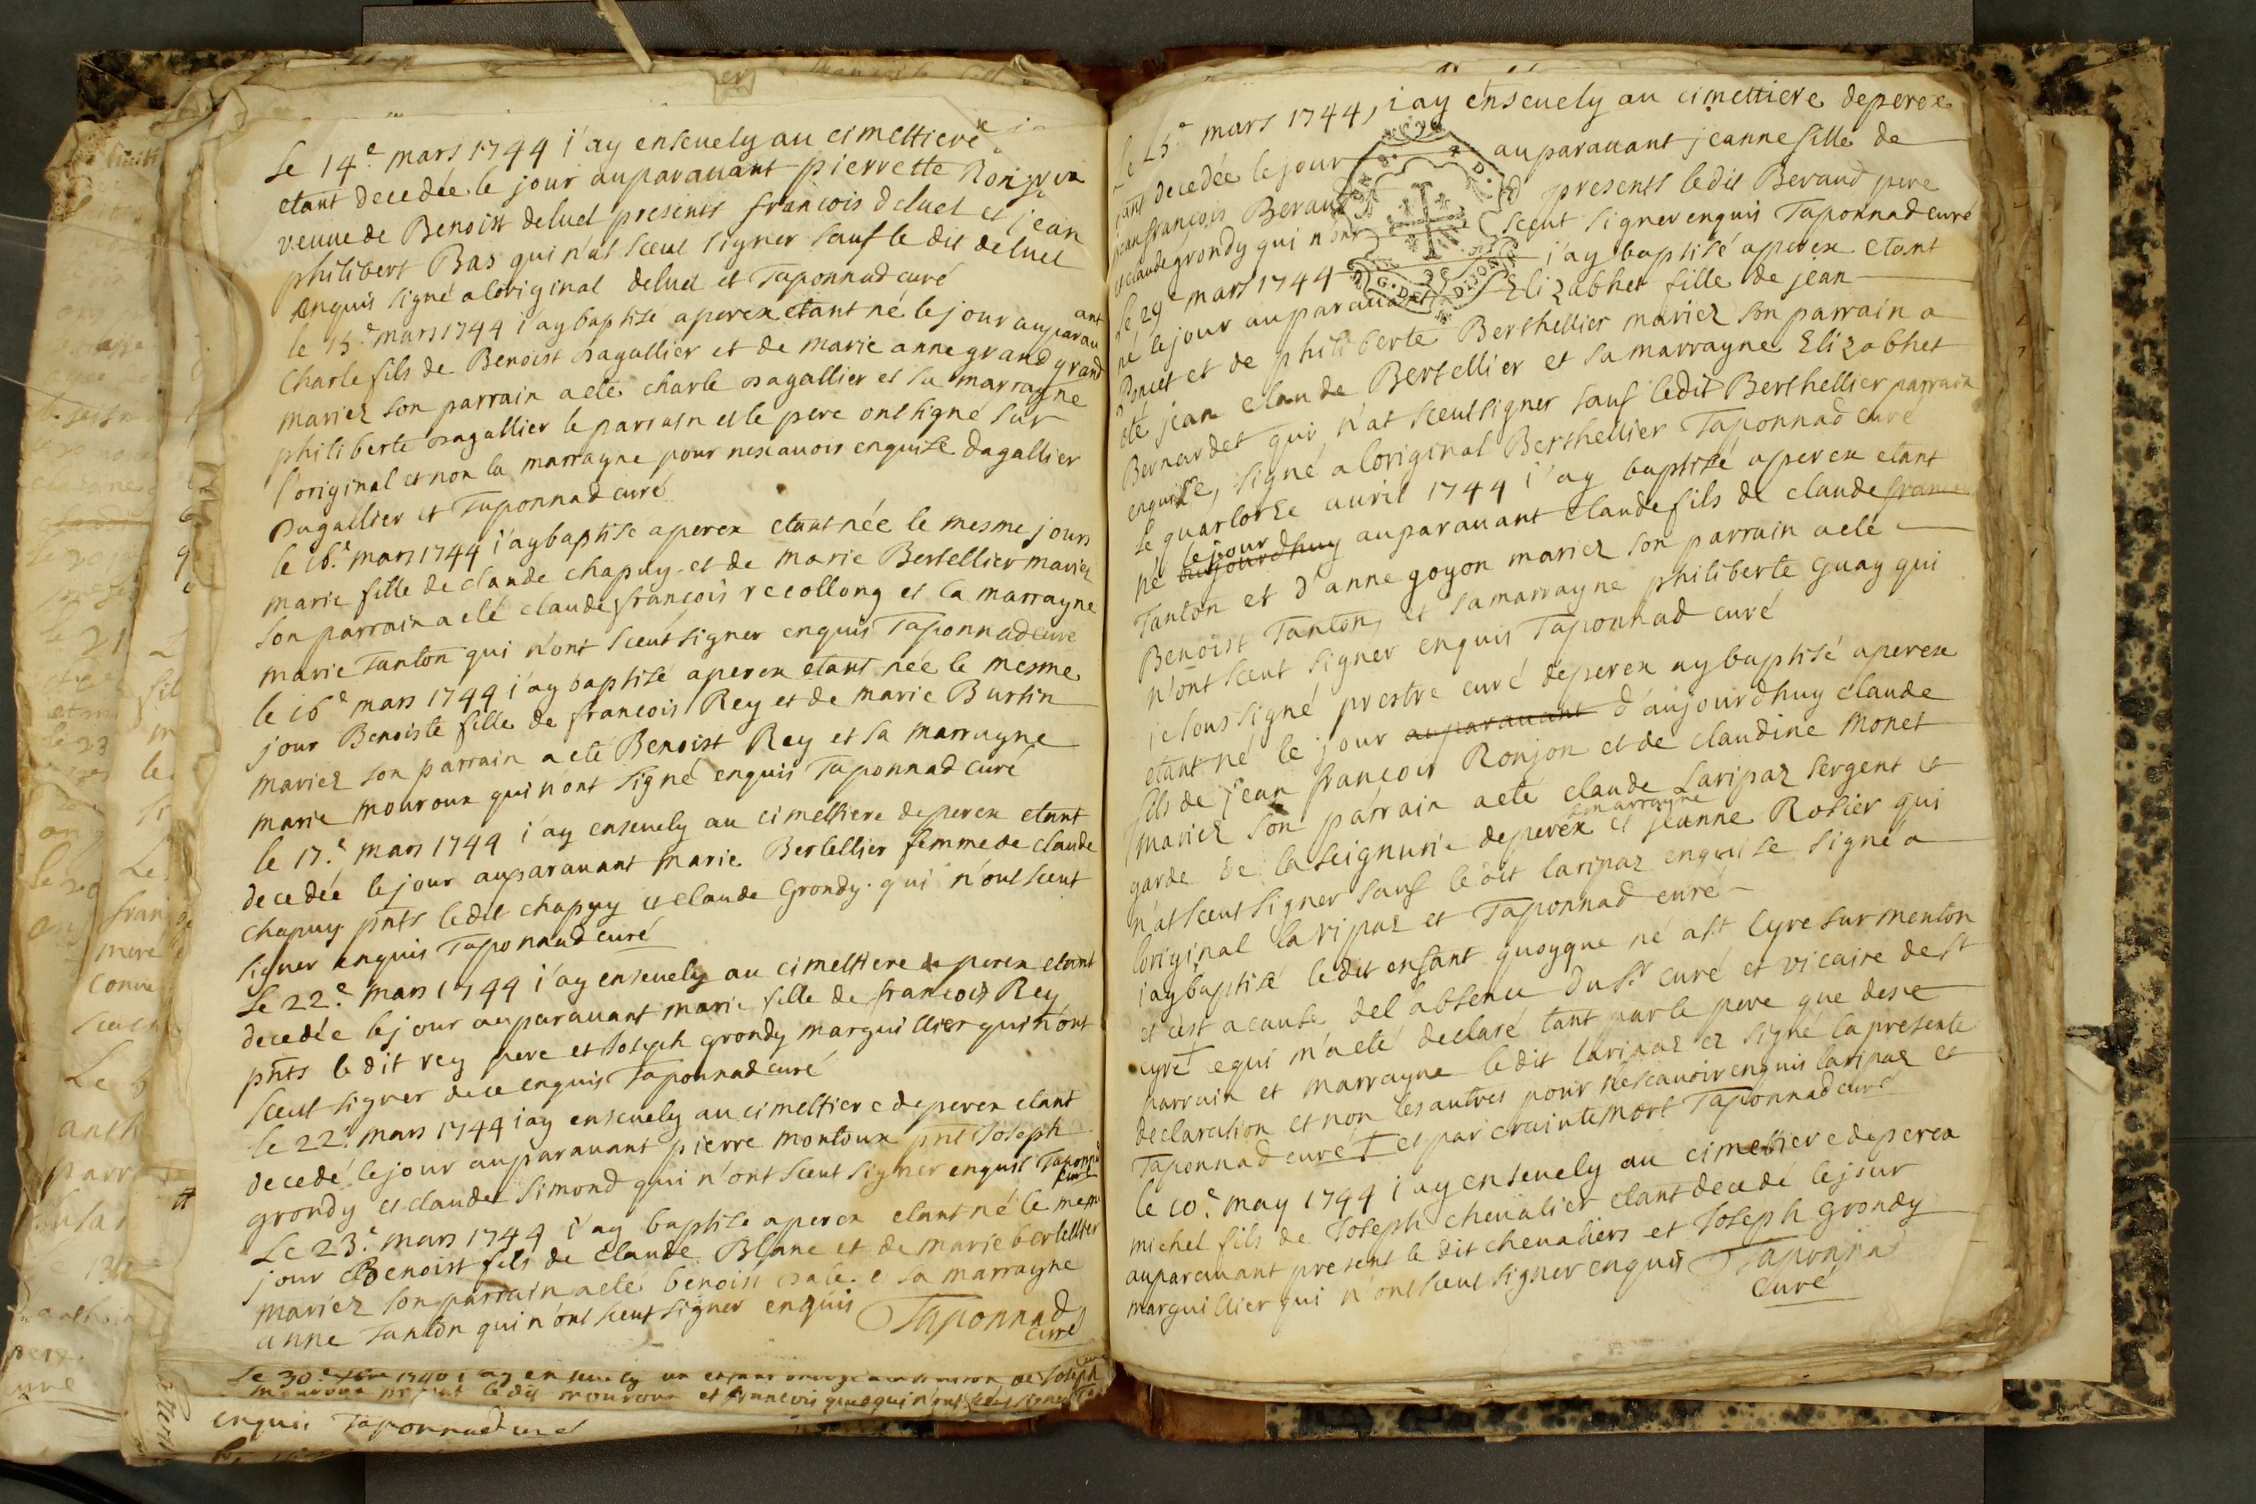 Le 14e mars 1744 i'ay enseuely au cimettiere
etant decedée le jour auparauant pierrette Ronjon
veuue de Benoist deluel presents francois deluel et jean
philibert Bas qui n'at sceut signer sauf le dit deluel
enquis signé a loriginal deluel et Taponnad curé
le 15e mars 1744 i'ay baptisé a perex etant né le jour auparauant
Charle fils de Benoist dagallier et de marie anne grand grand
mariez son parrain a eté charle dagallier et sa marrayne
philiberte dagallier le parrain et le pere ont signé sur
l'original et non la marrayne pour ne scauoir enquise dagallier
Dagallier et Taponnad curé
le 16e mars 1744 i'ay baptisé a perex etant née le mesme jours
marie fille de claude chapuy et de marie Bertellier mariez
son parrain a eté claude francois recollong et la marrayne
marie Tanton qui n'ont sceut signer enquis Taponnad curé
le 16e mars 1744 i'ay baptisé a perex etant née le mesme
jour Benoiste fille de francois Rey et de marie Burtin
mariez son parrain a eté Benoist Rey et sa marrayne
marie mouroux qui n'ont signé enquis Taponnad curé
le 17e mars 1744 i'ay enseuely au cimettiere de perex etant
decedée le jour auparauant marie Bertellier femme de claude
chapuy pnts ledit chapuy et claude Grondy qui n'ont sceut
signer enquis Taponnad curé
Le 22e mars 1744 i'ay enseuely au cimettiere de perex etant
decedée le jour auparauant marie fille de francois Rey
pnts le dit rey pere et Joseph grondy marguillier qui n'ont
sceut signer de ce enquis Taponnad curé
Le 22e mars 1744 i'ay enseuely au cimettiere de perex etant
decedé le jour auparauant pierre montoux pnt Joseph
grondy et claude Simond qui n'ont sceut signer enquis Taponnad
curé
Le 23e mars 1744 i'ay baptisé a perex etant né le mesme
jour Benoist fils de Claude Blanc et de marie bertellier
mariez son parrain a eté benoist et sa marrayne
anne Tanton qui n'ont sceut signer enquis Taponnad
curé
Le 30e 1740 i'ay enseuely un enfant de Joseph
mouroux present ledit mouroux et francois qui n'ont sceut signer
enquis Taponnad curé
le 25e mars 1744, i'ay enseuely au cimettiere de perex
etant decedée le jour auparauant jeanne fille de
jean francois Beraud presents ledit Beraud pere
et claude grondy qui n'ont sceut signer enquis Taponnad curé
le 29e mars 1744 i'ay baptisé a perex etant
né le jour auparauant Elizabhet fille de jean
Poncet et de philiberte Berthellier mariez son parrain a
eté jean claude Bertellier et sa marrayne Elizabhet
Bernardet qui n'at sceut signer sauf ledit Berthellier parrain
enquise, signé a loriginal Berthellier Taponnad curé
le quartorze auril 1744 i'ay baptisé a perex etant
né aujourdhuy le jour auparauant claude fils de claude francois
Tanton et d'anne goyon mariez son parrain a eté
Benoist Tanton, et sa marrayne philiberte Guay qui
n'ont sceut signer enquis Taponnad curé
je soussigné prestre curé de perex ay baptisé a perex
etant né le jour auparauant d'aujourdhuy claude
fils de jean francois Ronjon et de claudine Monet
mariez son parrain a eté claude Laripaz sergent et
garde de la seignurie de perex et sa marrayne jeanne Rosier qui
n'at sceut signer sauf le dit laripaz enquise signé a
loriginal laripaz et Taponnad curé
i'ay baptisé ledit enfant quoyque né a st Cyre sur menton
et c'est a cause de l'absence du sr curé et vicaire de st
cyre ce qui m'a eté declaré tant par le pere que des
parrain et marrayne ledit laripaz et signé la presente
declaration et non les autres pour ne scauoir enquis laripaz et
Taponnad curé + et par crainte mort Taponnad curé
le 10e may 1744 i'ay enseuely au cimettiere de perex
michel fils de Joseph chevalier etant decede le jour
auparauant present le dit chevaliers et Joseph grondy
marguillier qui n'ont sceut signer enquis Taponnad
curé